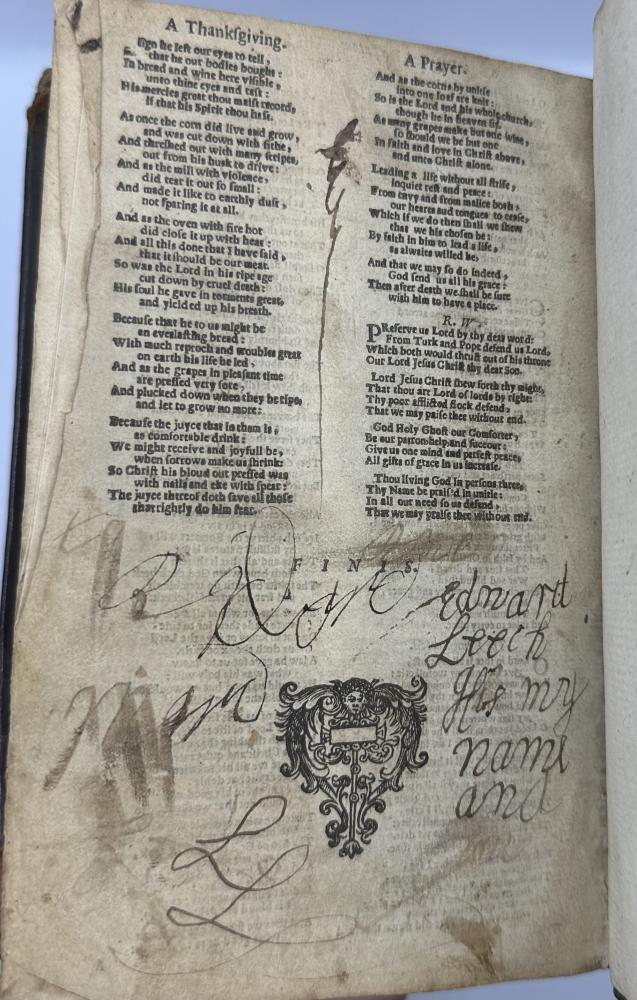 A Thanksgiving.
sign he left our eyes to tell,
that he our bodies bought:
In bread and wine here visible,
unto thine eyes and tast:
His mercies great thou maist record,
if that his Spirit thou hast.
As once the corn did live and grow,
and was cut down with sithe,
And threshed out with many stripes,
out from his husk to drive:
And as the mill with violence,
did tear it out so small:
And made it like to earthly dust,
not sparing it at all.
And as the oven with fire hot
did close it up with heat:
And all this done that I have said,
that it should be our meat.
So was the Lord in his ripe age
cut down by cruel death:
His soul he gave in torments great,
and yielded up his breath.
Because that he to us might be
an everlasting bread:
With much reproch and troubles great
on earth his life he led,
And as the grapes in pleasant time
are pressed very sore,
And plucked down when they be ripe,
and let to grow no more:
Because the juyce that in them is,
as comfortable drink:
We might receive and joyfull be,
when sorrows make us shrink:
So Christ his bloud out pressed was
with nails and eke with spear:
The juyce thereof doth save all those
that rightly do him fear.
A Prayer.
And as the corns by unitie
into one loaf are knit:
So is the Lord and his whole church,
though he in heaven sit.
As many grapes make but one wine,
so should we be but one
In faith and love in Christ above,
and unto Christ alone.
Leading a life without all strife,
in quiet rest and peace:
From envy and from malice both,
our hearts and tongues to cease,
Which if we do then shall we shew
that we his chosen be:
By faith in him to lead a life,
as alwaies willed he,
And that we may so do indeed,
God send us all his grace:
Then after death we shall be sure
with him to have a place.
R. W.
PReserve us Lord by thy dear word:
From Turk and Pope defend us Lord,
Which both would thrust out of his throne
Our Lord Jesus Christ thy dear Son.
Lord Jesus Christ shew forth thy might,
That thou art Lord of lords by right:
Thy poor afflicted flock defend,
That we may praise thee without end.
God Holy Ghost our Comforter,
Be our patron, help and succour:
Give us one mind and perfect peace,
All gifts of grace in us increase.
Thou living God in persons three,
Thy Name be prais'd in unitie:
In all our need so us defend,
That we may praise thee without end.
FINIS.
Edward
Leech
his my
name
and